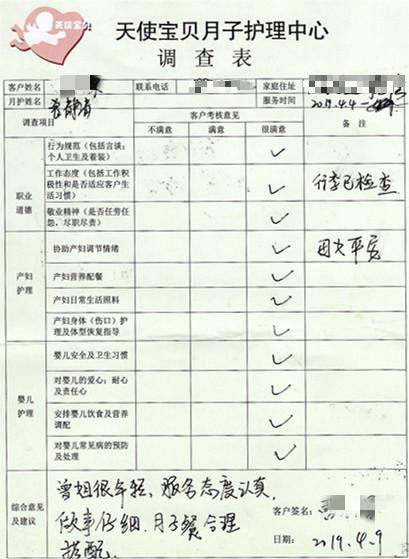 天使宝贝
天使宝贝月子护理中心
调查表
客户姓名 联系电话 家庭住址
月护姓名 服务时间 2019.4.4
调查项目 客户考核意见 备注
不满意 满意 很满意
职业道德
行为规范（包括言谈；个人卫生及着装） ✓
工作态度（包括工作积极性和是否适应客户生活习惯） ✓ 行李已检查
敬业精神（是否任劳任怨，尽职尽责） ✓
产妇护理
协助产妇调节情绪 ✓
产妇营养配餐 ✓
产妇日常生活照料 ✓
产妇身体（伤口）护理及体型恢复指导 ✓
婴儿护理
婴儿安全及卫生习惯 ✓
对婴儿的爱心；耐心及责任心 ✓
安排婴儿饮食及营养调配 ✓
对婴儿常见病的预防及处理 ✓
综合意见及建议
曾姐很年轻、服务态度认真
做事仔细.月子餐合理
搭配.
客户签名：
日期：2019.4.9